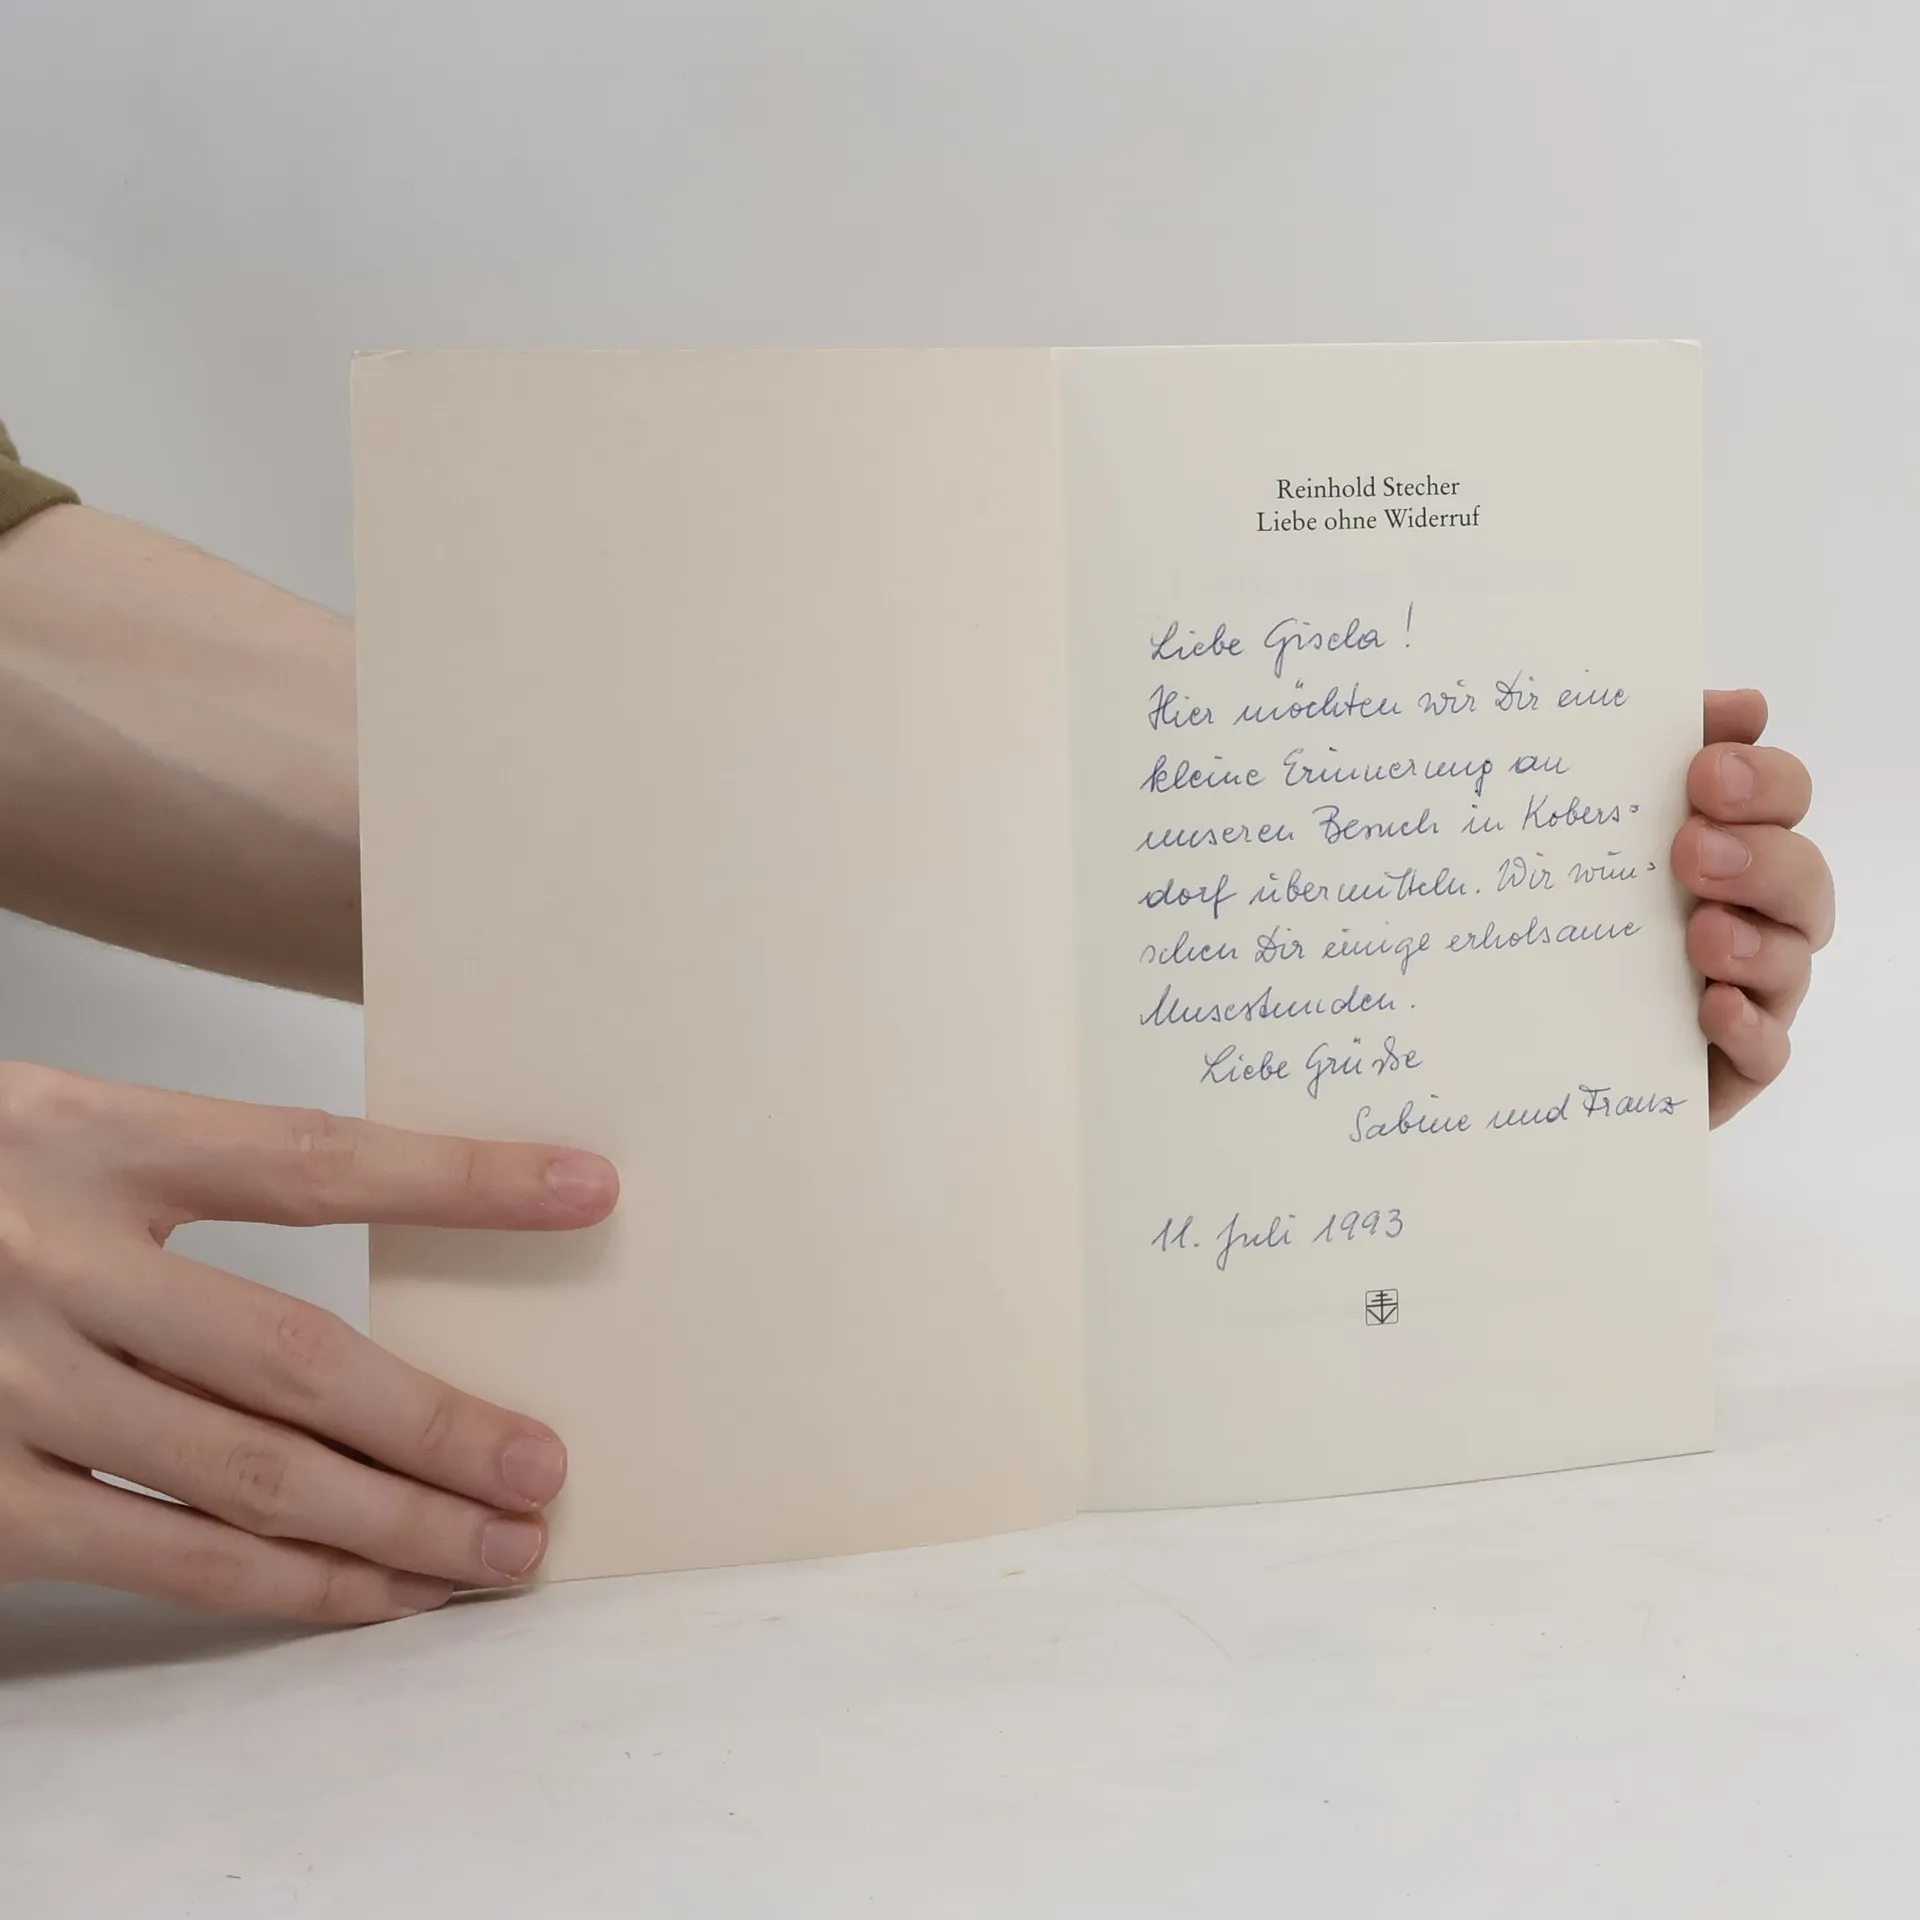 Reinhold Stecher
Liebe ohne Widerruf
Liebe Gisela!
Hier möchten wir Dir eine
kleine Erinnerung an
unseren Besuch in Kobers=
dorf übermitteln. Wir wün=
schen Dir einige erholsame
Musestunden.
Liebe Grüße
Sabine und Franz
11. Juli 1993